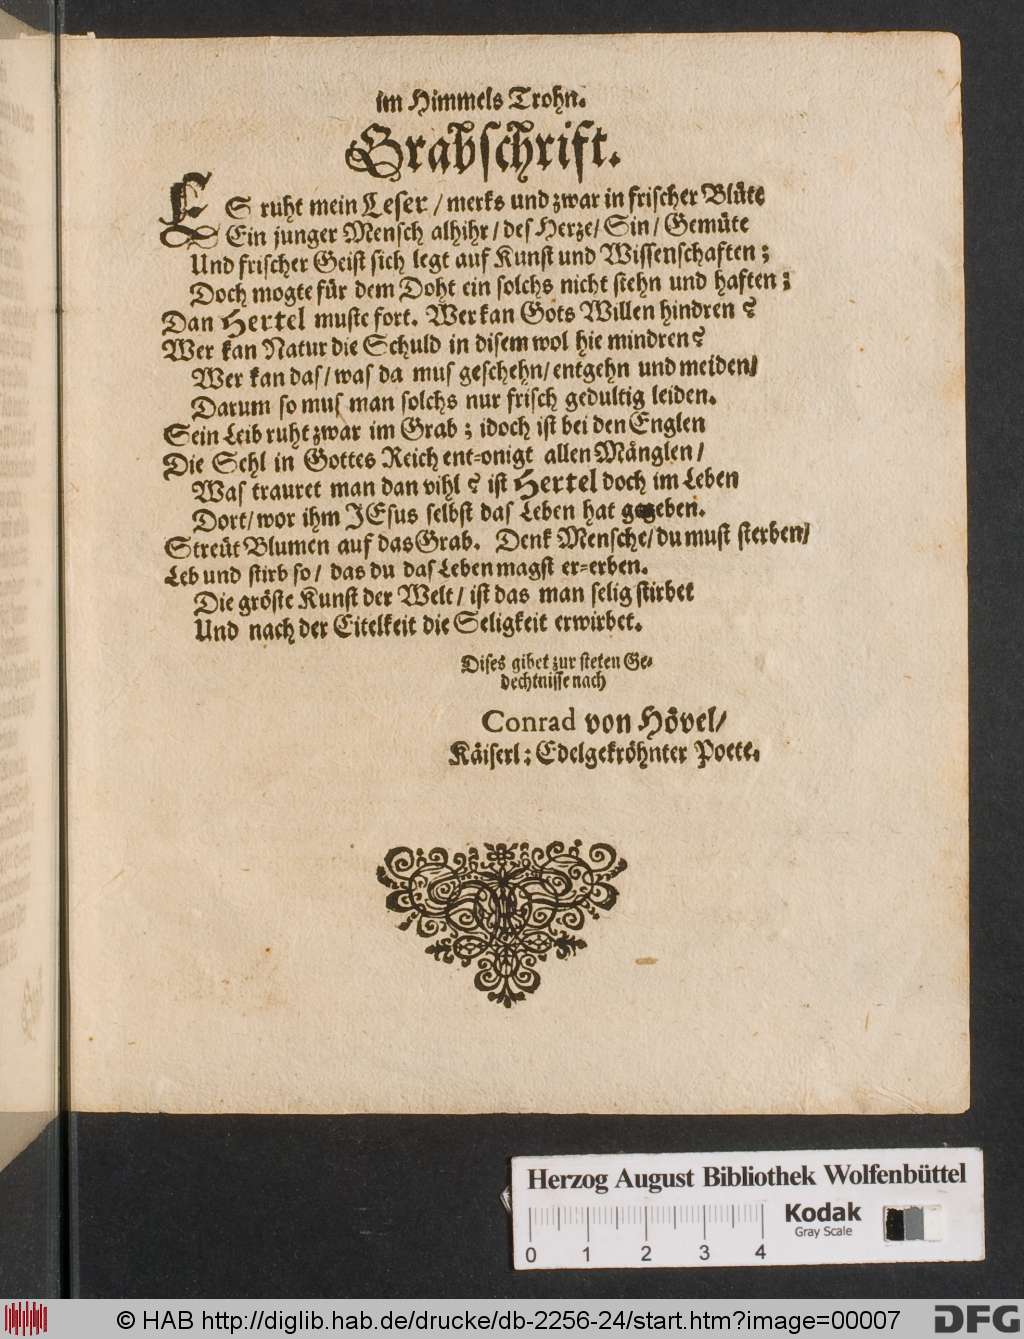 im Himmels Trohn.
Grabschrift.
ES ruht mein Leser / merks und zwar in frischer Blüte
Ein junger Mensch alhihr / des Herze / Sin / Gemüte
Und frischer Geist sich legt auf Kunst und Wissenschaften ;
Doch mogte für dem Doht ein solchs nicht stehn und haften ;
Dan Hertel muste fort. Wer kan Gots Willen hindren ?
Wer kan Natur die Schuld in disem wol hie mindren ?
Wer kan das / was da mus geschehn / entgehn und meiden /
Darum so mus man solchs nur frisch gedultig leiden.
Sein Leib ruht zwar im Grab ; idoch ist bei den Englen
Die Sehl in Gottes Reich ent=onigt allen Mänglen /
Was trauret man dan vihl ? ist Hertel doch im Leben
Dort / wor ihm JEsus selbst das Leben hat gegeben.
Streüt Blumen auf das Grab. Denk Mensche / du must sterben /
Leb und stirb so / das du das Leben magst er=erben.
Die gröste Kunst der Welt / ist das man selig stirbet
Und nach der Eitelkeit die Seligkeit erwirbet.
Dises gibet zur steten Ge=
dechtnisse nach
Conrad von Hövel /
Käiserl: Edelgekröhnter Poete.
Herzog August Bibliothek Wolfenbüttel
Kodak
Gray Scale
0 1 2 3 4
© HAB http://diglib.hab.de/drucke/db-2256-24/start.htm?image=00007
DFG